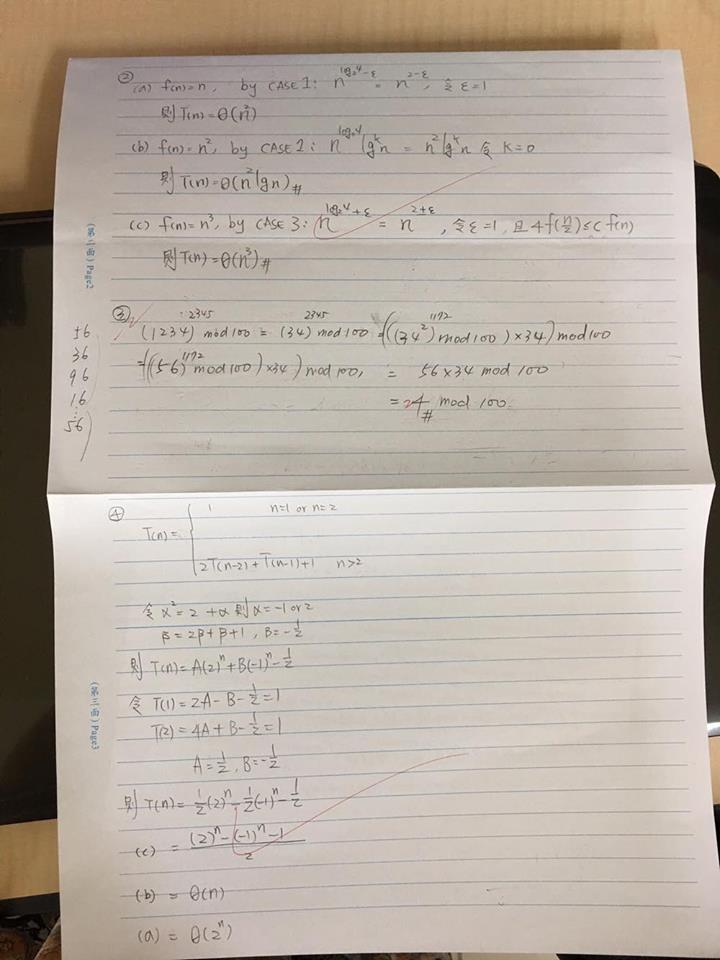 ② (a) f(n)=n, by CASE 1: n^{log₂4-ε} = n^{2-ε}, 令 ε=1
則 T(n)=θ(n²)
(b) f(n)=n², by CASE 2: n^{log₂4} lg^k n = n² lg^k n 令 K=0
則 T(n)=θ(n² lgn) #
(c) f(n)=n³, by CASE 3: n^{log₂4+ε} = n^{2+ε}, 令 ε=1, 且 4f(n/2) ≤ c f(n)
則 T(n)=θ(n³) #
③ (1234)^{2345} mod 100 = (34)^{2345} mod 100 = (((34²)^{1172} mod 100) × 34) mod 100
= (((56)^{1172} mod 100) × 34) mod 100, = 56×34 mod 100
= 24 # mod 100
56
36
96
16
⋮
56
Page2
④ T(n)= { 1 n=1 or n=2
2T(n-2)+T(n-1)+1 n>2
令 α²=2+α 則 α=-1 or 2
β=2β+β+1, β=-1/2
則 T(n)=A(2)^n+B(-1)^n-1/2
令 T(1)=2A-B-1/2=1
T(2)=4A+B-1/2=1
A=1/2, B=-1/2
則 T(n)=1/2(2)^n-1/2(-1)^n-1/2
(c) = ((2)^n-(-1)^n-1)/2
(b) = θ(n)
(a) = θ(2^n)
Page3